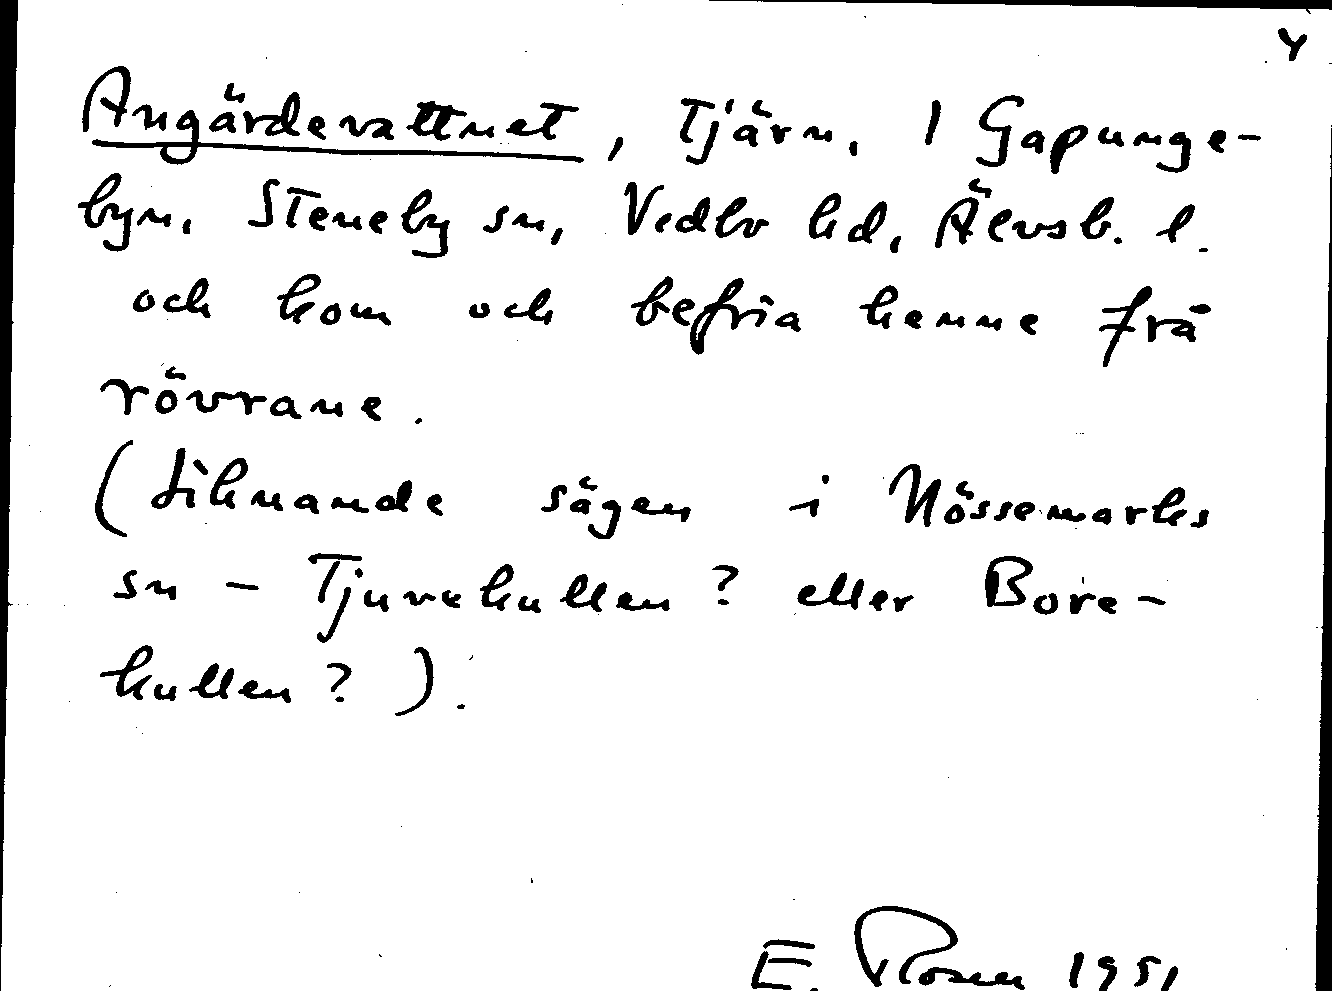 4
Angärdevattnet, Tjärn, 1 Gapunge-
byn, Steneby sn, Vedbo hd, Älvsb. l.
och kom och befria henne frå
rövrane.
(Liknande sägen i Nössemarks
sn - Tjuvekullen? eller Bore-
kullen?).
E. Rosen 1951